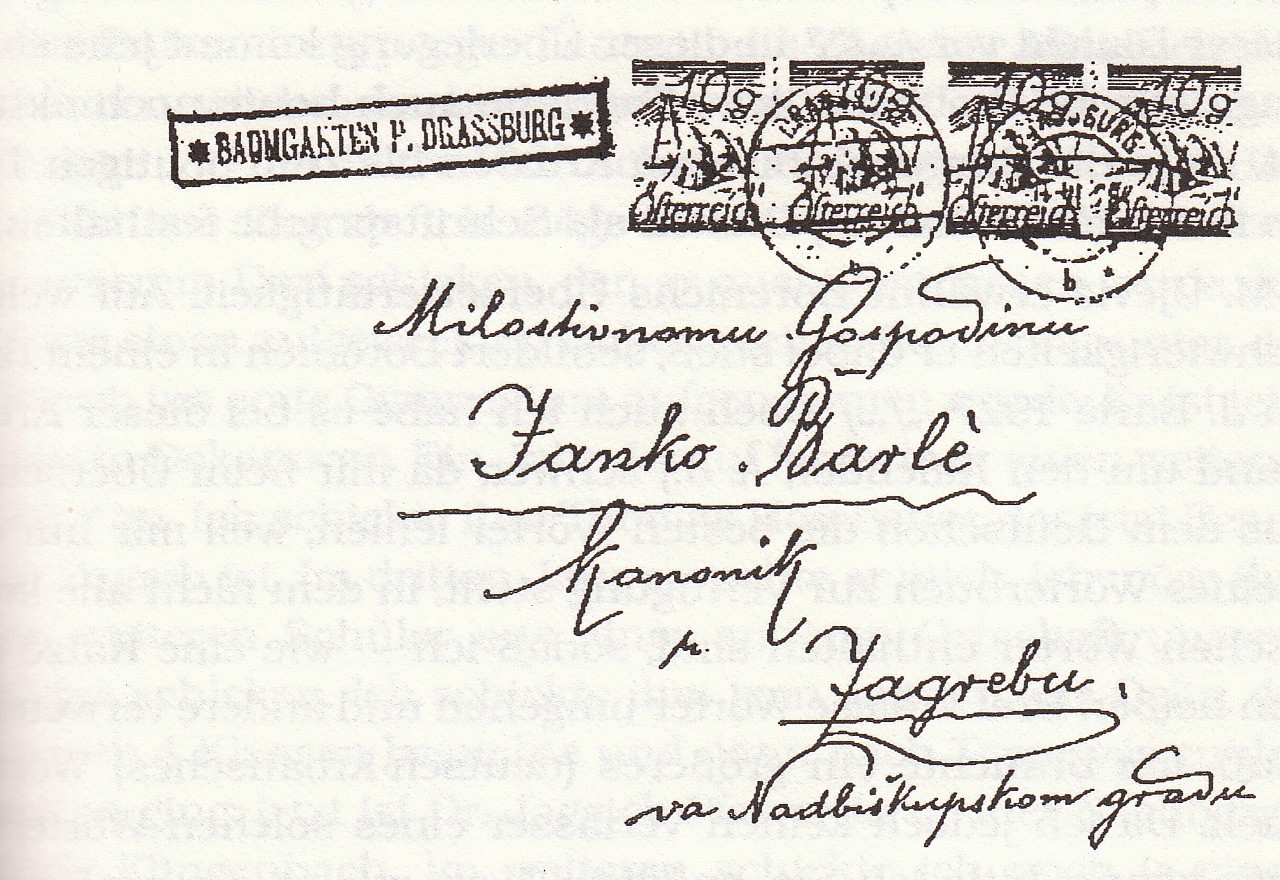 * BAUMGARTEN P. DRASSBURG *
10g 10g 10g 10g
Österreich Österreich Österreich Österreich
b *
Milostivnomu Gospodinu
Janko Barlè
Kanonik
u Zagrebu,
va Nadbiškupskom gradu